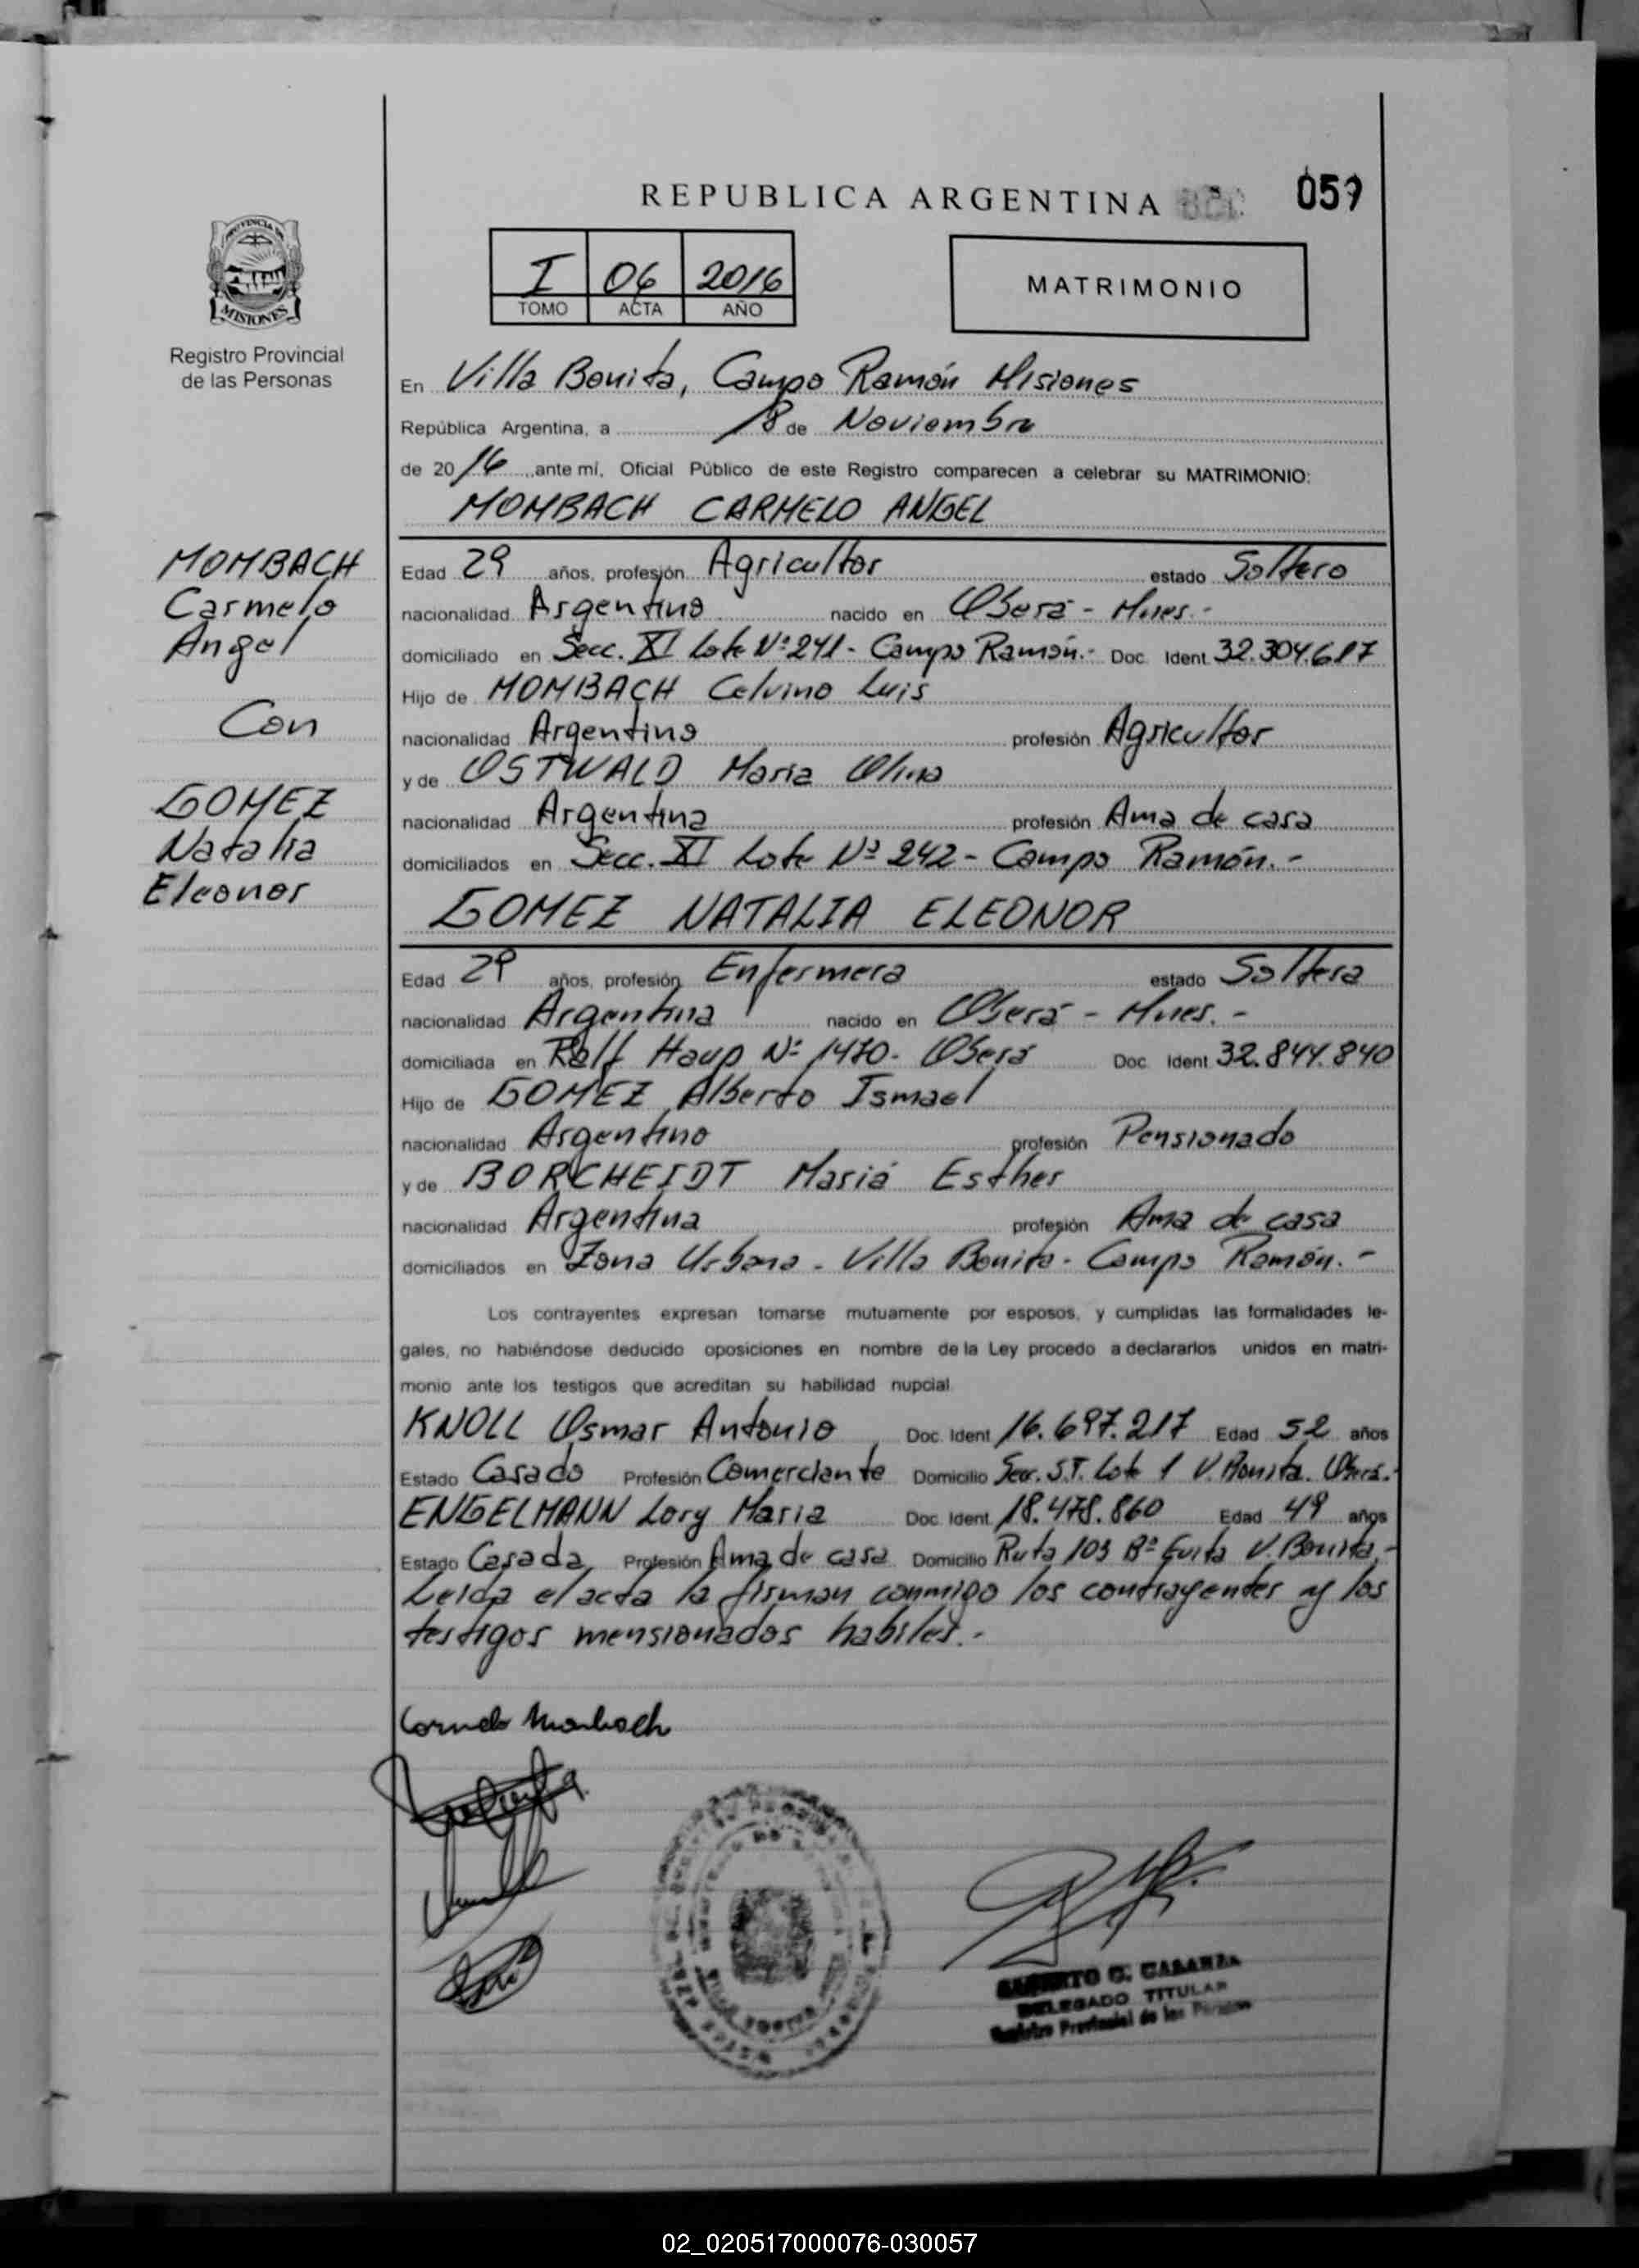 REPUBLICA ARGENTINA 059
I 06 2016
TOMO ACTA AÑO
MATRIMONIO
PROVINCIA DE
MISIONES
Registro Provincial
de las Personas
En Villa Bonita, Campo Ramón Misiones
República Argentina, a 18 de Noviembre
de 2016 ante mí, Oficial Público de este Registro comparecen a celebrar su MATRIMONIO:
MOMBACH CARMELO ANGEL
MOMBACH
Carmelo
Angel
Con
GOMEZ
Natalia
Eleonor
Edad 29 años, profesión Agricultor estado Soltero
nacionalidad Argentino nacido en Oberá - Mnes.-
domiciliado en Secc. XI Lote Nº 241- Campo Ramón.- Doc. Ident. 32.304.617
Hijo de MOMBACH Celvino Luis
nacionalidad Argentino profesión Agricultor
y de OSTWALD Maria Olina
nacionalidad Argentina profesión Ama de casa
domiciliados en Secc. XI Lote Nº 242- Campo Ramón.-
GOMEZ NATALIA ELEONOR
Edad 29 años, profesión Enfermera estado Soltera
nacionalidad Argentina nacido en Oberá - Mnes.-
domiciliada en Ralf Haup Nº 1470- Oberá Doc. Ident 32.844.840
Hijo de GOMEZ Alberto Ismael
nacionalidad Argentino profesión Pensionado
y de BORCHEIDT Mariá Esther
nacionalidad Argentina profesión Ama de casa
domiciliados en Zona Urbana - Villa Bonita - Campo Ramón.-
Los contrayentes expresan tomarse mutuamente por esposos, y cumplidas las formalidades le-
gales, no habiéndose deducido oposiciones en nombre de la Ley procedo a declararlos unidos en matri-
monio ante los testigos que acreditan su habilidad nupcial.
KNOLL Osmar Antonio Doc. Ident. 16.697.217 Edad 52 años
Estado Casado Profesión Comerciante Domicilio Secc. S.T. Lote 1 V. Bonita. Oberá.-
ENGELMANN Lory Maria Doc. Ident. 18.478.860 Edad 49 años
Estado Casada Profesión Ama de casa Domicilio Ruta 103 Bº Evita V. Bonita.-
Leida el acta la firman conmigo los contrayentes y los
testigos mensionados habiles.-
Carmelo Mombach
G. CABAÑA
DELEGADO TITULAR
Registro Provincial de las Personas
02_020517000076-030057